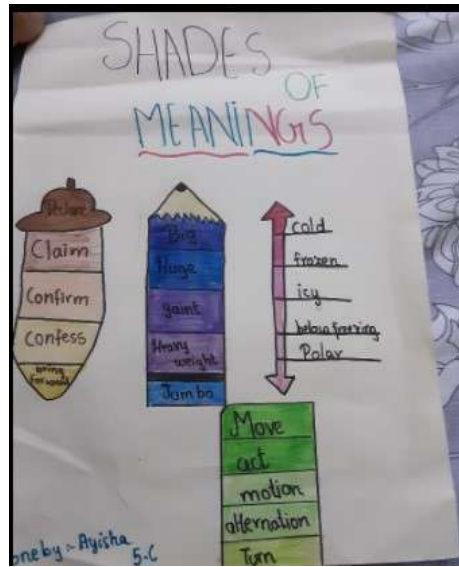 SHADES
OF
MEANiNGS
Declare
Claim
Confirm
Confess
bring
forward
Big
Huge
gaint
Heavy
weight
Jumbo
cold
frozen
icy
below freezing
Polar
Move
act
motion
alternation
Turn
oneby :- Ayisha
5.C